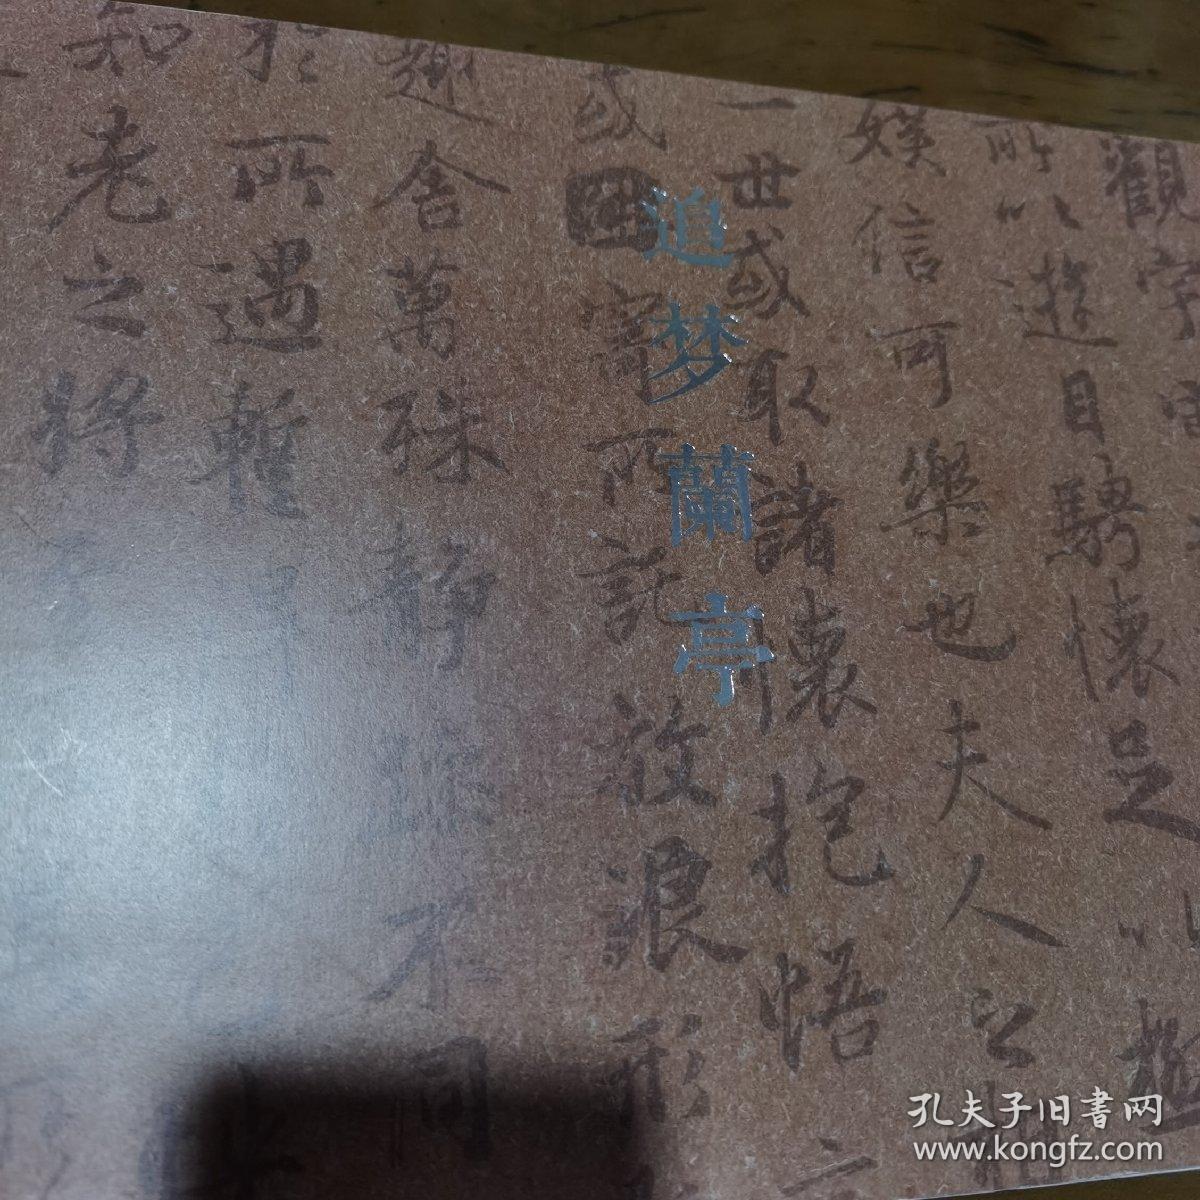 追梦蘭亭
觀宇宙
所以遊目騁懷足以極
娛信可樂也夫人之相
一世或取諸懷抱悟
或因寄所託放浪形
趣舍萬殊靜躁不同
於所遇暫
知老之將
孔夫子旧書网
www.kongfz.com